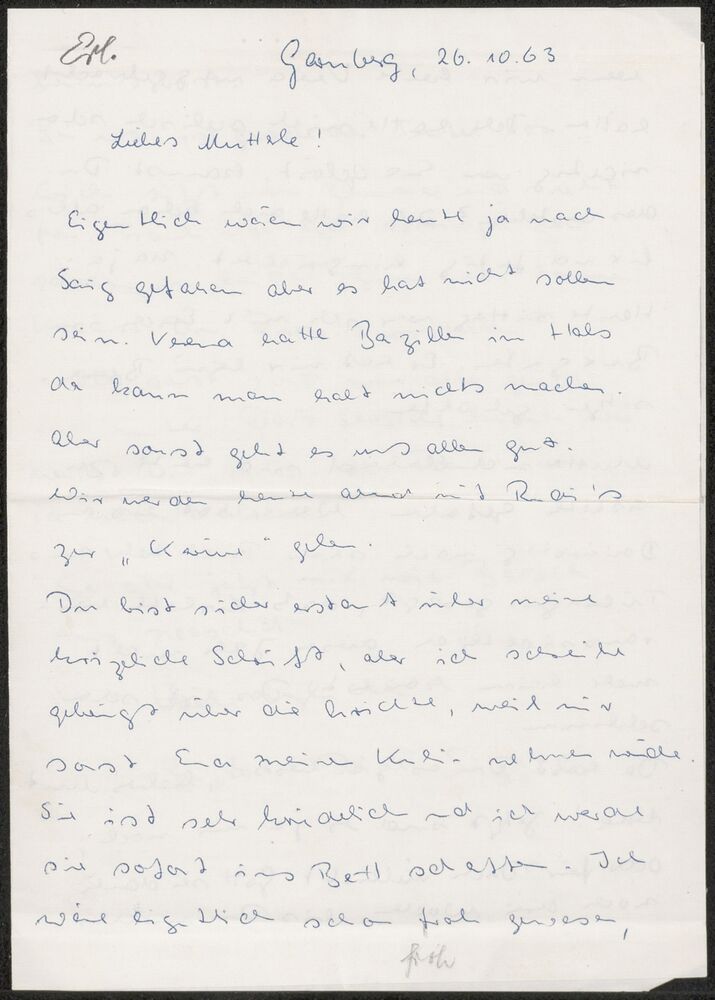 Erl.
Gamberg, 26.10.63
Liebes Mutterle!
Eigentlich wären wir heute ja nach
Saig gefahren aber es hat nicht sollen
sein. Verena hatte Bazillen im Hals
da kann man halt nichts machen.
Aber sonst geht es uns allen gut.
Wir werden heute abend mit
zur " " gehen.
Du bist sicher erstaunt über meine
krizeliche Schrift, aber ich schreibe
gebeugt über die , weil mir
sonst Eva meinen Kuli nehmen würde.
Sie ist sehr und ich werde
sie sofort ins Bett schaffen. Ich
wäre eigentlich schon froh gewesen,
froh